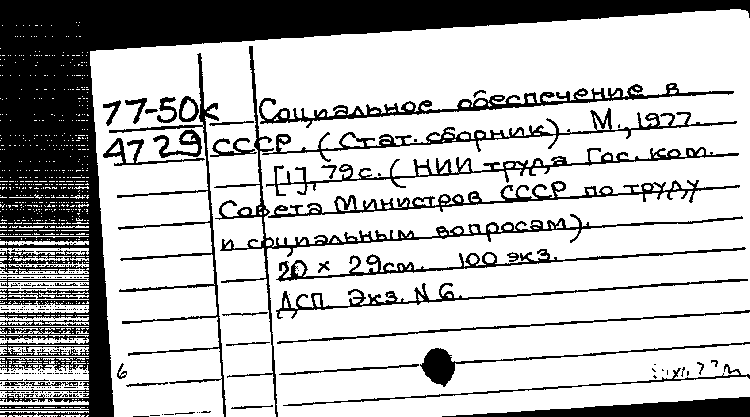 77-50к Социальное обеспечение в
4729 СССР. (Стат. сборник). М., 1977.
[1], 79 с. (НИИ труда Гос. ком.
Совета Министров СССР по труду
и социальным вопросам).
20 × 29 см. 100 экз.
ДСП. Экз. N 6.
6